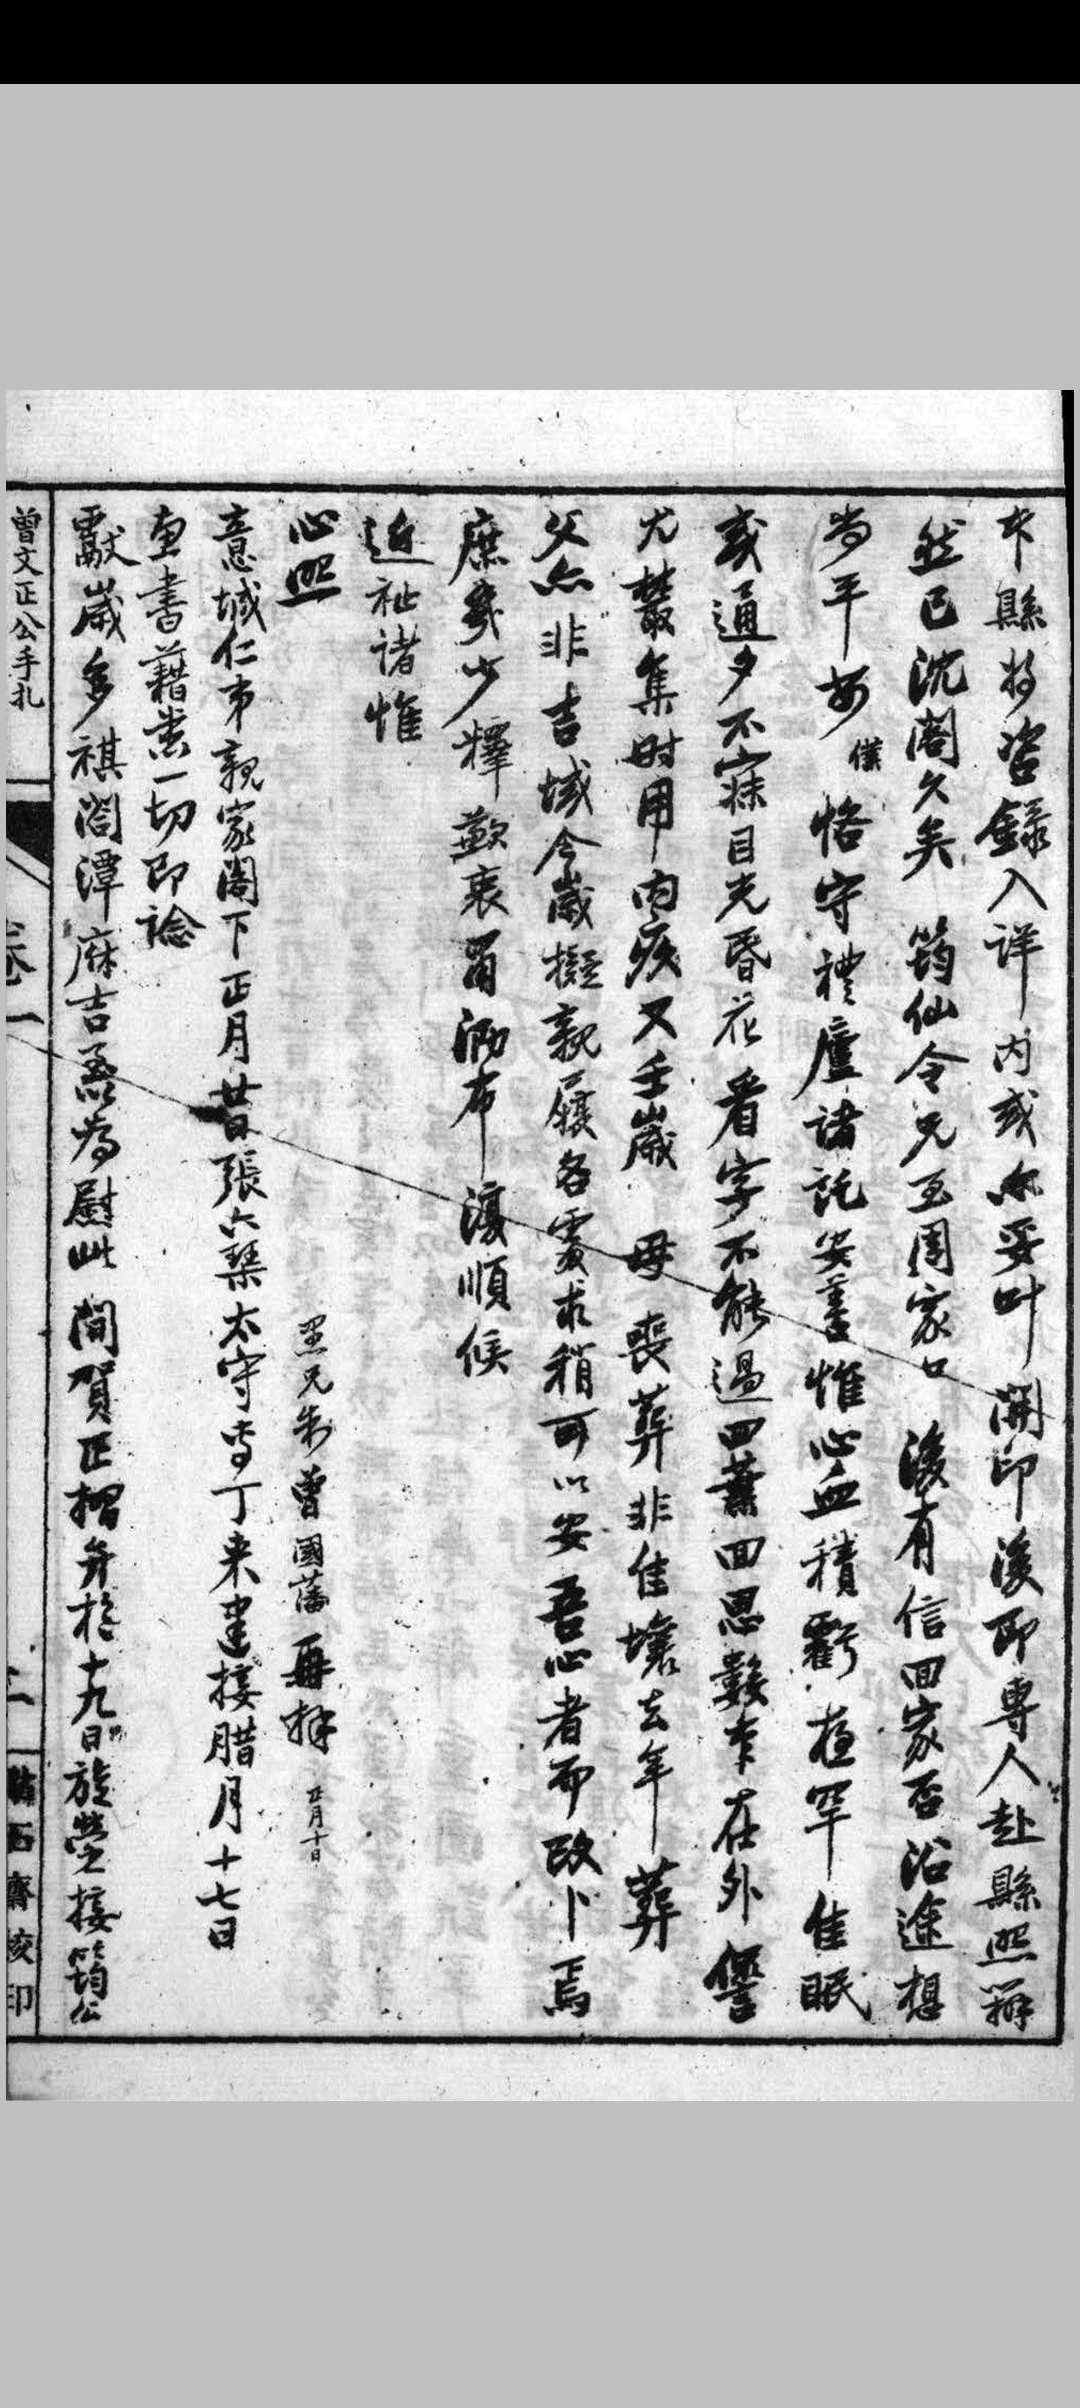 卞縣將咨錄入詳內或亦妥叶開印後即專人赴縣照辦
然已沈閣久矣 筠仙令兄至周家口 後有信回家否沿途想
尚平安 僕恪守禮廬諸託安善惟心血積虧極罕佳眠
或通夕不寐目光昏花看字不能過四葉回思數年在外愆
尤叢集時用內疚又壬歲 母 喪葬非佳壤去年葬
父亦非吉域今歲擬親履各處求稍可以安吾心者而改卜焉
庶幾少釋歉衷耑泐布復順候
近祉諸惟
心照
罡兄制曾國藩再拜 正月十日
意城仁弟親家閣下正月廿日張六琴太守專丁來建接腊月十七日
惠書藉悉一切即諗
獻歲多祺閤潭麻吉爲慰此間賀正摺弁於十九日旋營接筠公
曾文正公手札
卷一
石齋校印